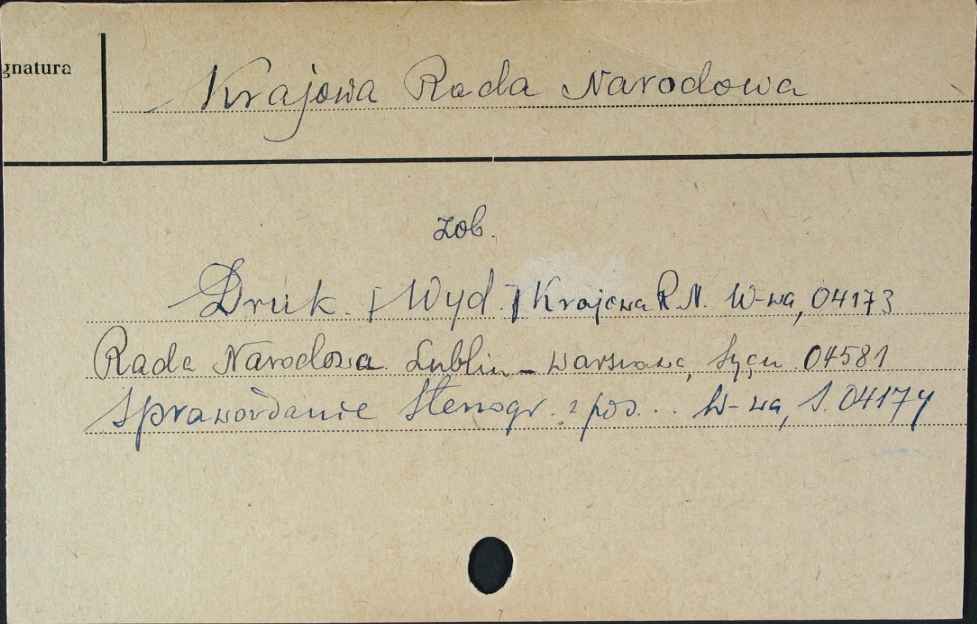 gnatura
Krajowa Rada Narodowa
zob.
Druk. [Wyd.] Krajowa R.N. W-wa, 04173
Rada Narodowa. Lublin - Warszawa, 04581
Sprawozdanie stenogr. z pos... W-wa, S. 04174